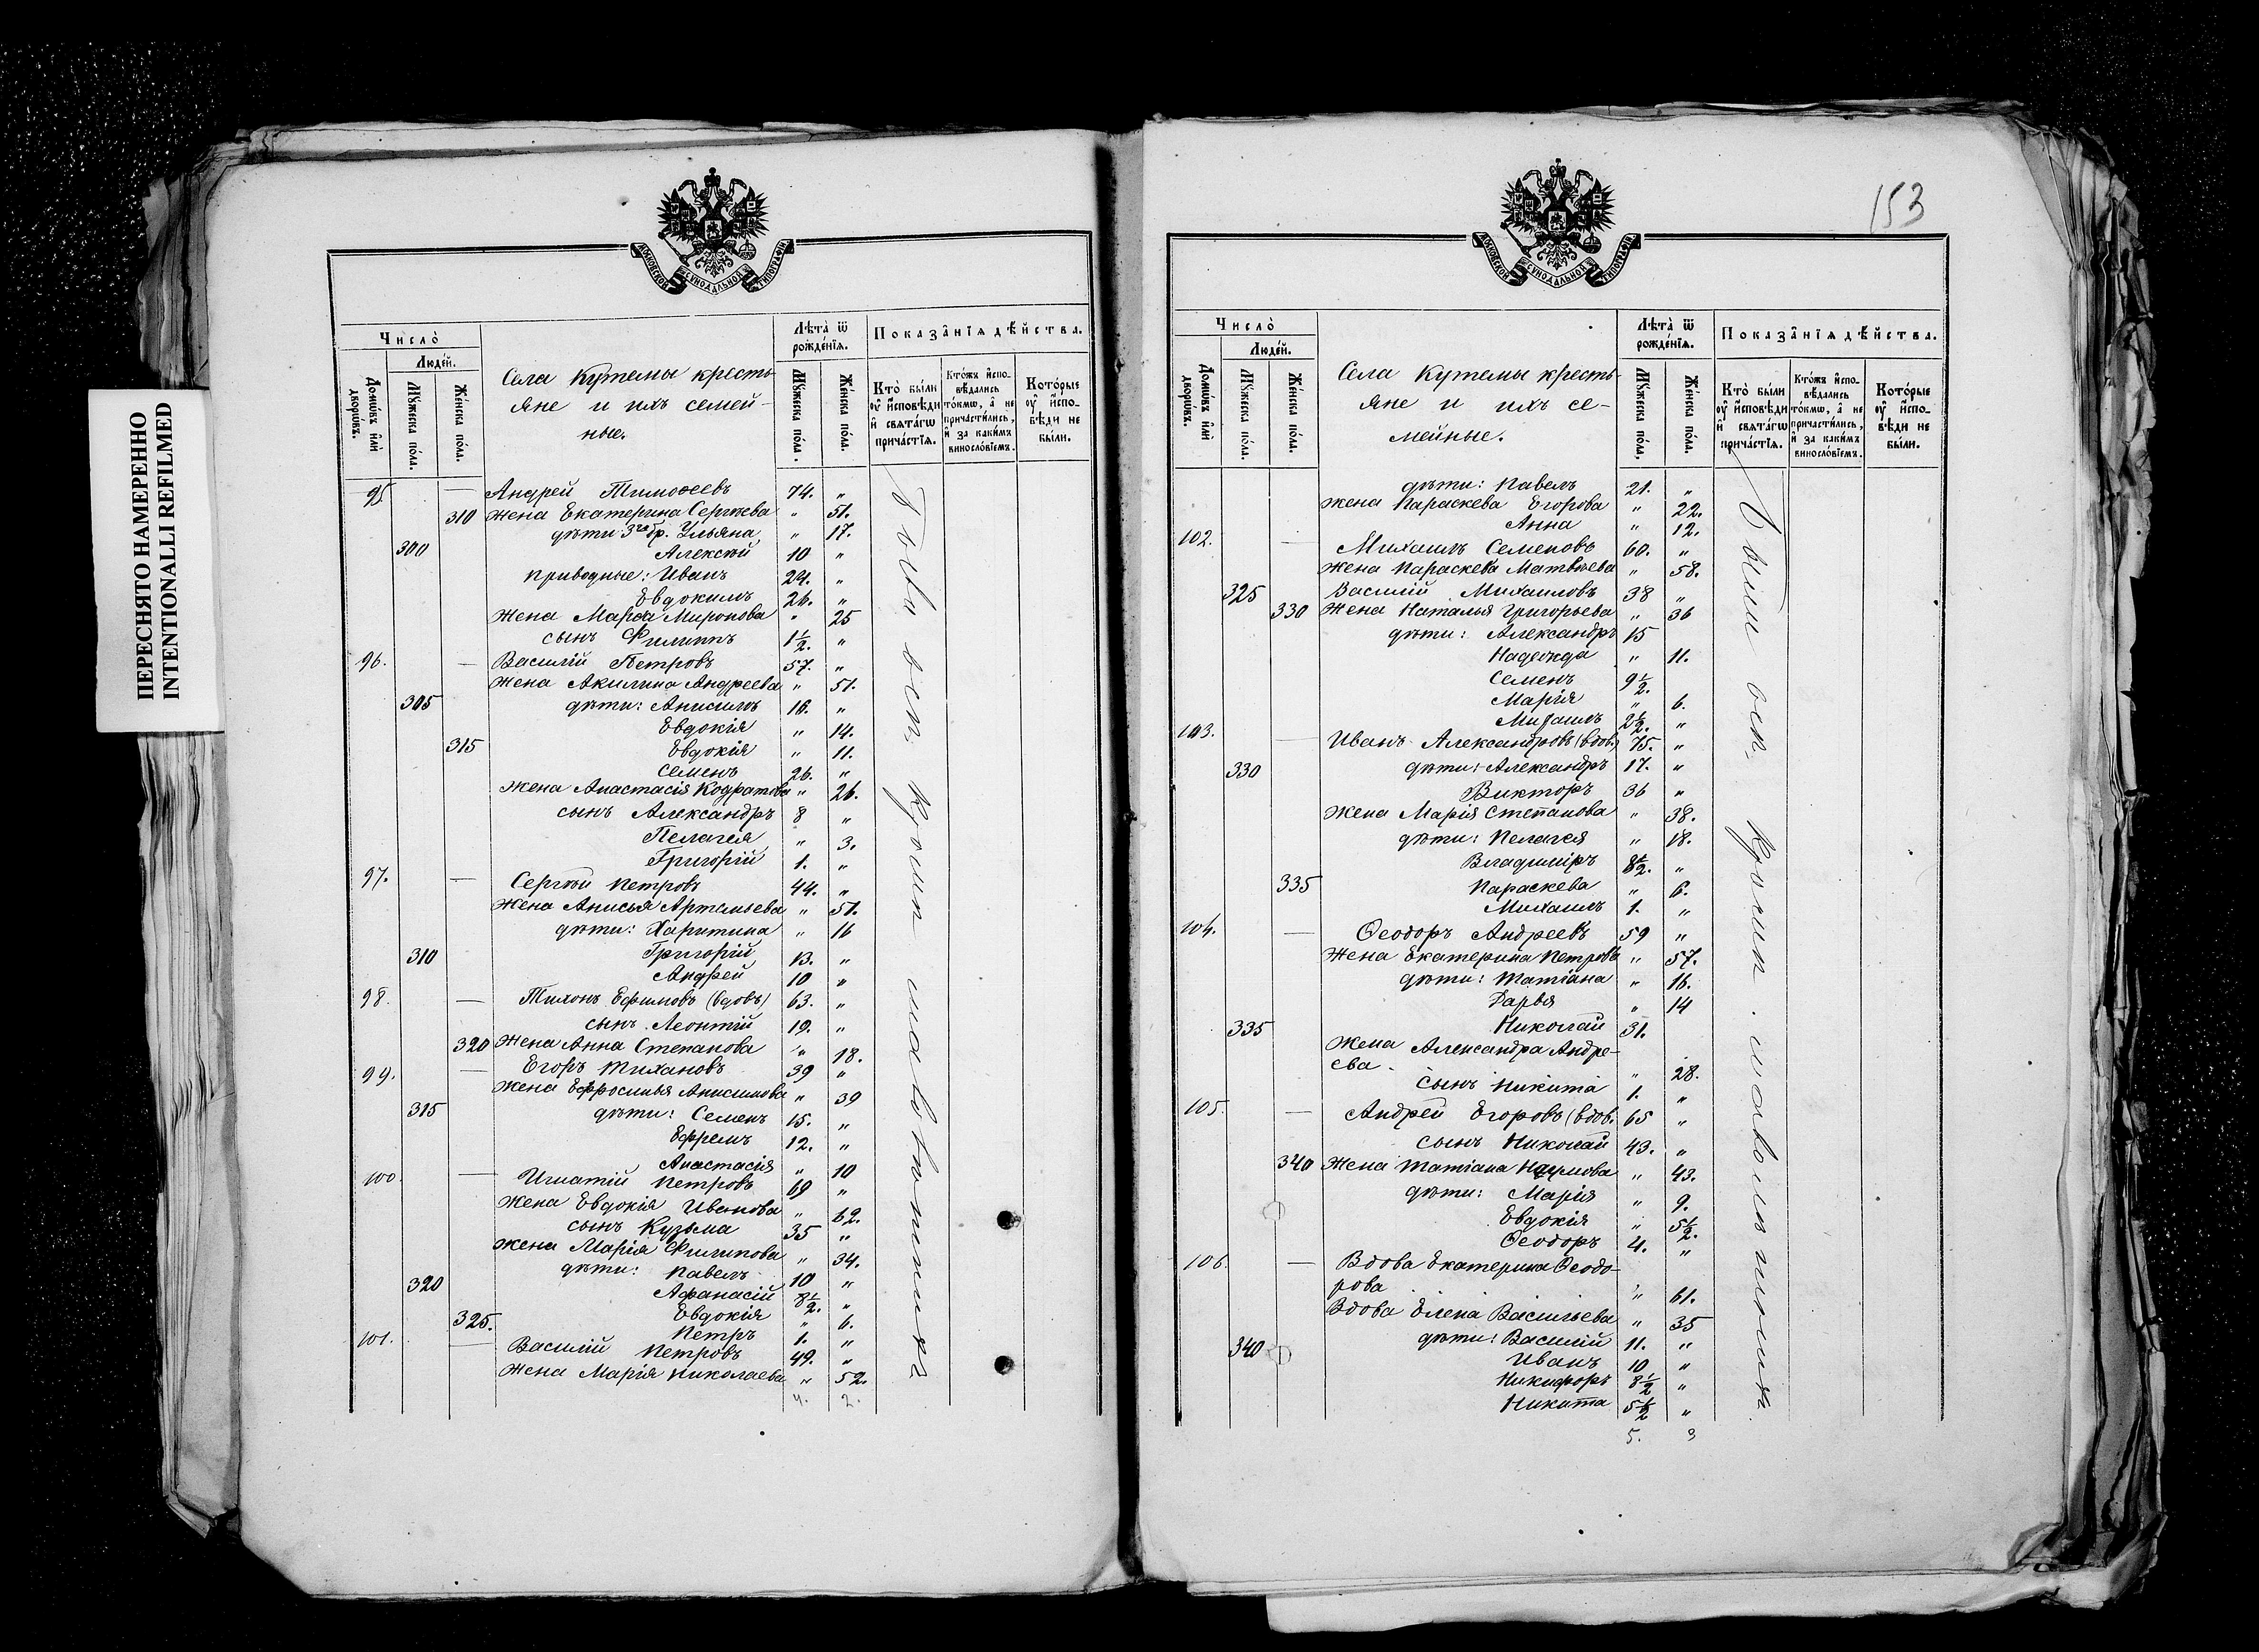 ПЕРЕСНЯТО НАМЕРЕННО
INTENTIONALLI REFILMED
МОСКОВСКОЙ СѴНОДАЛЬНОЙ ТИПОГРАФІИ
Число̀
Люде́й.
Домѡ́въ и҆лѝ дворѡ́въ.
Мꙋ́жеска по́ла.
Же́нска по́ла.
Села Кутемы кресть-
яне и ихъ семей-
ные.
Лѣ́та ѿ рожде́нїѧ.
Мꙋ́жеска по́ла.
Же́нска по́ла.
Показа̑нїѧ дѣ́йства.
Кто̀ бы́ли ᲂу҆ и҆сповѣ́ди и҆ свѧта́гѡ прича́стїѧ.
Кто́жъ и҆спо-
вѣ́дались то́кмѡ, а҆ не причасти́лись, и҆ за каки́мъ виносло́вїемъ.
Кото́рые ᲂу҆ и҆спо-
вѣ́ди не бы́ли.
95 — Андрей Тимоѳеевъ 74. „
310 жена Екатерина Сергѣева „ 51.
дѣти 3го бр. Ульяна „ 17.
300 Алексѣй 10 „
приводные: Иванъ 24. „
Евдокимъ 26. „
Жена Марѳа Миронова „ 25
сынъ Филиппъ 1½. „
96. — Василій Петровъ 57. „
жена Акилина Андреева „ 51.
305 дѣти: Анисимъ 16. „
Евдокія „ 14.
315 Евдокія „ 11.
Семенъ 26. „
жена Анастасія Кодратова „ 26.
сынъ Александръ 8 „
Пелагея „ 3.
Григорій 1. „
97. — Сергѣй Петровъ 44. „
жена Анисья Артемьева „ 51.
дѣти: Харитина „ 16
310 Григорій 13. „
Андрей 10 „
98. — Тихонъ Ефимовъ (вдовъ) 63. „
сынъ Леонтій 19. „
320 жена Анна Степанова „ 18.
99. — Егоръ Тихановъ 39 „
жена Ефросинья Анисимова „ 39
315 дѣти: Семенъ 15. „
Ефремъ 12. „
Анастасія „ 10
100. — Игнатій Петровъ 69 „
жена Евдокія Иванова „ 62.
сынъ Кузьма 35 „
жена Марія Филипова „ 34.
дѣти: Павелъ 10 „
320 Афанасій 8½. „
325. Евдокія „ 6.
Петръ 1. „
101. — Василій Петровъ 49. „
жена Марія Николаева „ 52.
4. 2.
153
МОСКОВСКОЙ СѴНОДАЛЬНОЙ ТИПОГРАФІИ
Число̀
Люде́й.
Домѡ́въ и҆лѝ дворѡ́въ.
Мꙋ́жеска по́ла.
Же́нска по́ла.
Села Кутемы кресть-
яне и ихъ се-
мейные.
Лѣ́та ѿ рожде́нїѧ.
Мꙋ́жеска по́ла.
Же́нска по́ла.
Показа̑нїѧ дѣ́йства.
Кто̀ бы́ли ᲂу҆ и҆сповѣ́ди и҆ свѧта́гѡ прича́стїѧ.
Кто́жъ и҆спо-
вѣ́дались то́кмѡ, а҆ не причасти́лись, и҆ за каки́мъ виносло́вїемъ.
Кото́рые ᲂу҆ и҆спо-
вѣ́ди не бы́ли.
дѣти: Павелъ 21. „
жена Параскева Егорова „ 22.
Анна „ 12.
102. — Михаилъ Семеновъ 60. „
жена Параскева Матвѣева „ 58.
325 Василій Михаиловъ 38 „
330 жена Наталья Григорьева „ 36
дѣти: Александръ 15
Надежда „ 11.
Семенъ 9½.
Марія „ 6.
Михаилъ 2½. „
103. — Иванъ Александровъ (вдов.) 75. „
330 дѣти: Александръ 17. „
Викторъ 36 „
жена Марія Степанова „ 38.
дѣти: Пелагея „ 18.
Владиміръ 8½. „
335 Параскева „ 6.
Михаилъ 1. „
104. — Ѳеодоръ Андреевъ 59 „
жена Екатерина Петрова „ 57.
дѣти: Татіана „ 16.
Дарья „ 14
335 Николай 31.
жена Александра Андре-
ева. „ 28.
сынъ Никита 1. „
105. — Андрей Егоровъ (вдов. 65 „
сынъ Николай 43. „
340 жена Татіана Наумова „ 43.
дѣти: Марія „ 9.
Евдокія „ 5½.
Ѳеодоръ 4. „
106. — Вдова Екатерина Ѳеодо-
рова „ 61.
Вдова Елена Васильева „ 35
340 дѣти: Василій 11. „
Иванъ 10 „
Никифоръ 8½ „
Никита 5½ „
5. 3